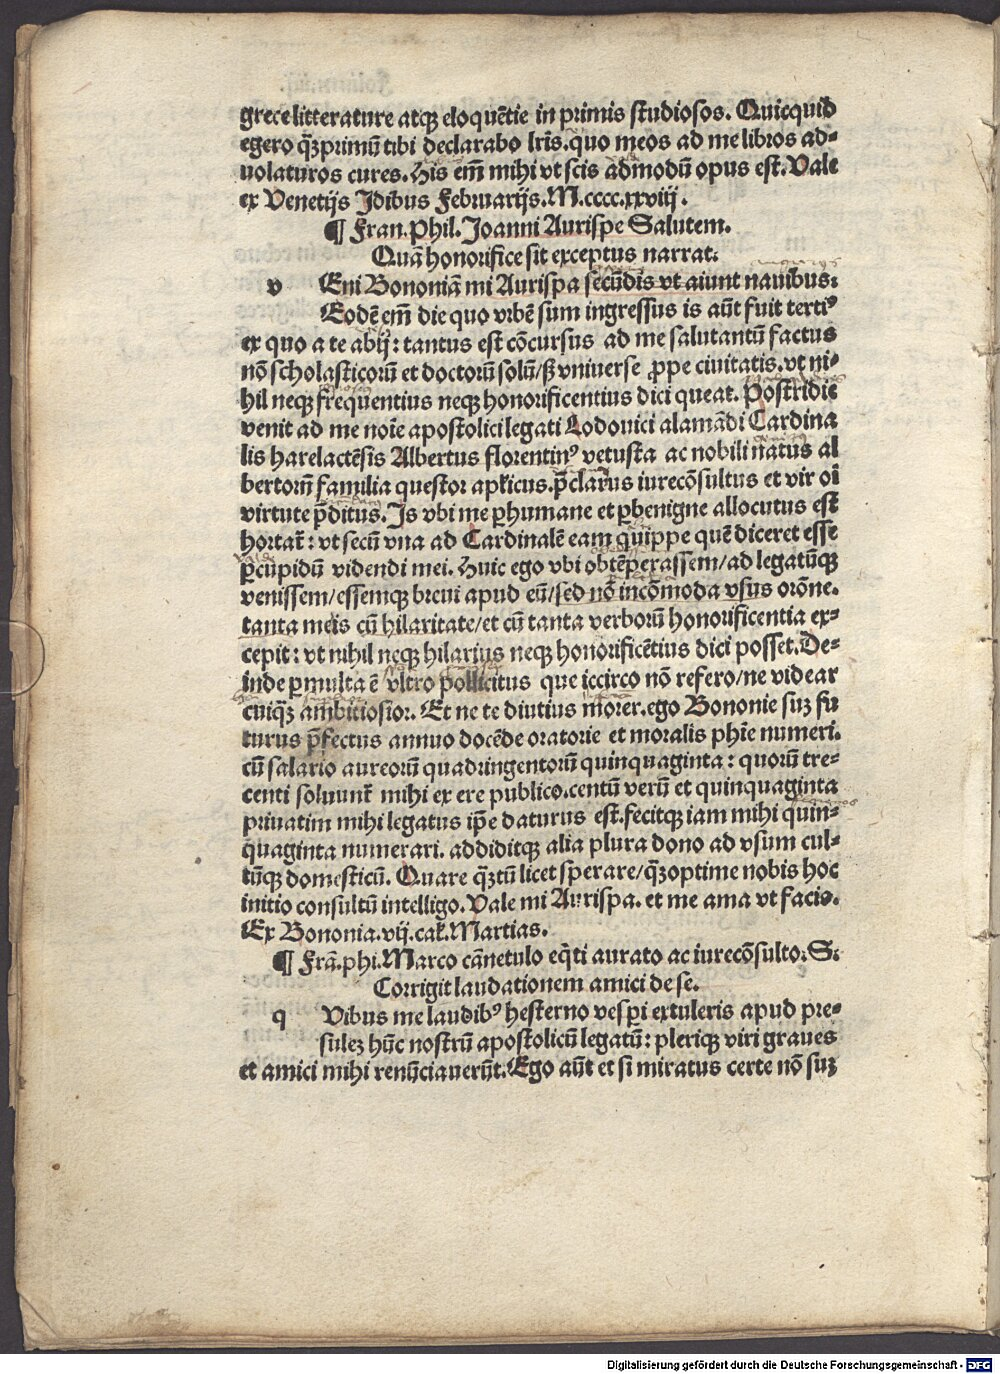 grece litterature atq̃ eloquẽtie in primis studiosos. Quicquid
egero q̃ȝprimũ tibi declarabo lr̃is. quo meos ad me libros ad⸗
uolaturos cures. His em̃ mihi vt scis admodũ opus est. Vale
ex Venetijs Jdibus Februarijs. M.cccc.xxviij.
¶ Fran. Phil. Joanni Aurispe Salutem.
Quã honorifice sit exceptus narrat.
v Eni Bononiã mi Aurispa secũdis vt aiunt nauibus:
Eodẽ em̃ die quo vrbẽ sum ingressus is aũt fuit terti⁹
ex quo a te abij: tantus est cõcursus ad me salutantũ factus
nõ scholasticorũ et doctorũ solũ/ sȝ vniuerse ꝓpe ciuitatis. vt ni⸗
hil neq̃ frequentius neq̃ honorificentius dici queat. Postridie
venit ad me noĩe apostolici legati Lodouici alamãdi Cardina
lis harelactẽsis Albertus florentin⁹ vetusta ac nobili natus al
bertorũ familia questor apl̃icus. p̃clarus iurecõsultus et vir oĩ
virtute p̃ditus. Js vbi me ꝑhumane et ꝑbenigne allocutus est
hortat̃: vt secũ vna ad Cardinalẽ eam quippe quẽ diceret esse
ꝑcupidũ videndi mei. Huic ego vbi obtẽperassem/ ad legatũq̃
venissem/ essemq̃ breui apud eũ/ sed nõ incõmoda vsus orõne.
tanta meis cũ hilaritate/ et cũ tanta verborũ honorificentia ex⸗
cepit: vt nihil neq̃ hilarius neq̃ honorificẽtius dici posset. De⸗
inde ꝑmulta ẽ vltro pollicitus que iccirco nõ refero/ ne videar
cuiq̃ȝ ambitiosior. Et ne te diutius morer. ego Bononie suȝ fu
turus p̃fectus annuo docẽde oratorie et moralis phie numeri.
cũ salario aureorũ quadringentorũ quinquaginta: quorũ tre⸗
centi soluunt̃ mihi ex ere publico. centũ verũ et quinquaginta
priuatim mihi legatus ip̃e daturus est. fecitq̃ iam mihi quin⸗
quaginta numerari. addiditq̃ alia plura dono ad vsum cul⸗
tũq̃ domesticũ. Quare q̃ȝtũ licet sperare/ q̃ȝoptime nobis hoc
initio consultũ intelligo. Vale mi Aurispa. et me ama vt facis.
Ex Bononia. vij. cal̃. Martias.
¶ Frã. phi. Marco cãnetulo eq̃ti aurato ac iurecõsulto. S.
Corrigit laudationem amici de se.
q Vibus me laudib⁹ hesterno vesꝑi extuleris apud pre⸗
sulez hũc nostrũ apostolicũ legatũ: pleriq̃ viri graues
et amici mihi renũciauerũt. Ego aũt et si miratus certe nõ suȝ
Digitalisierung gefördert durch die Deutsche Forschungsgemeinschaft - DFG